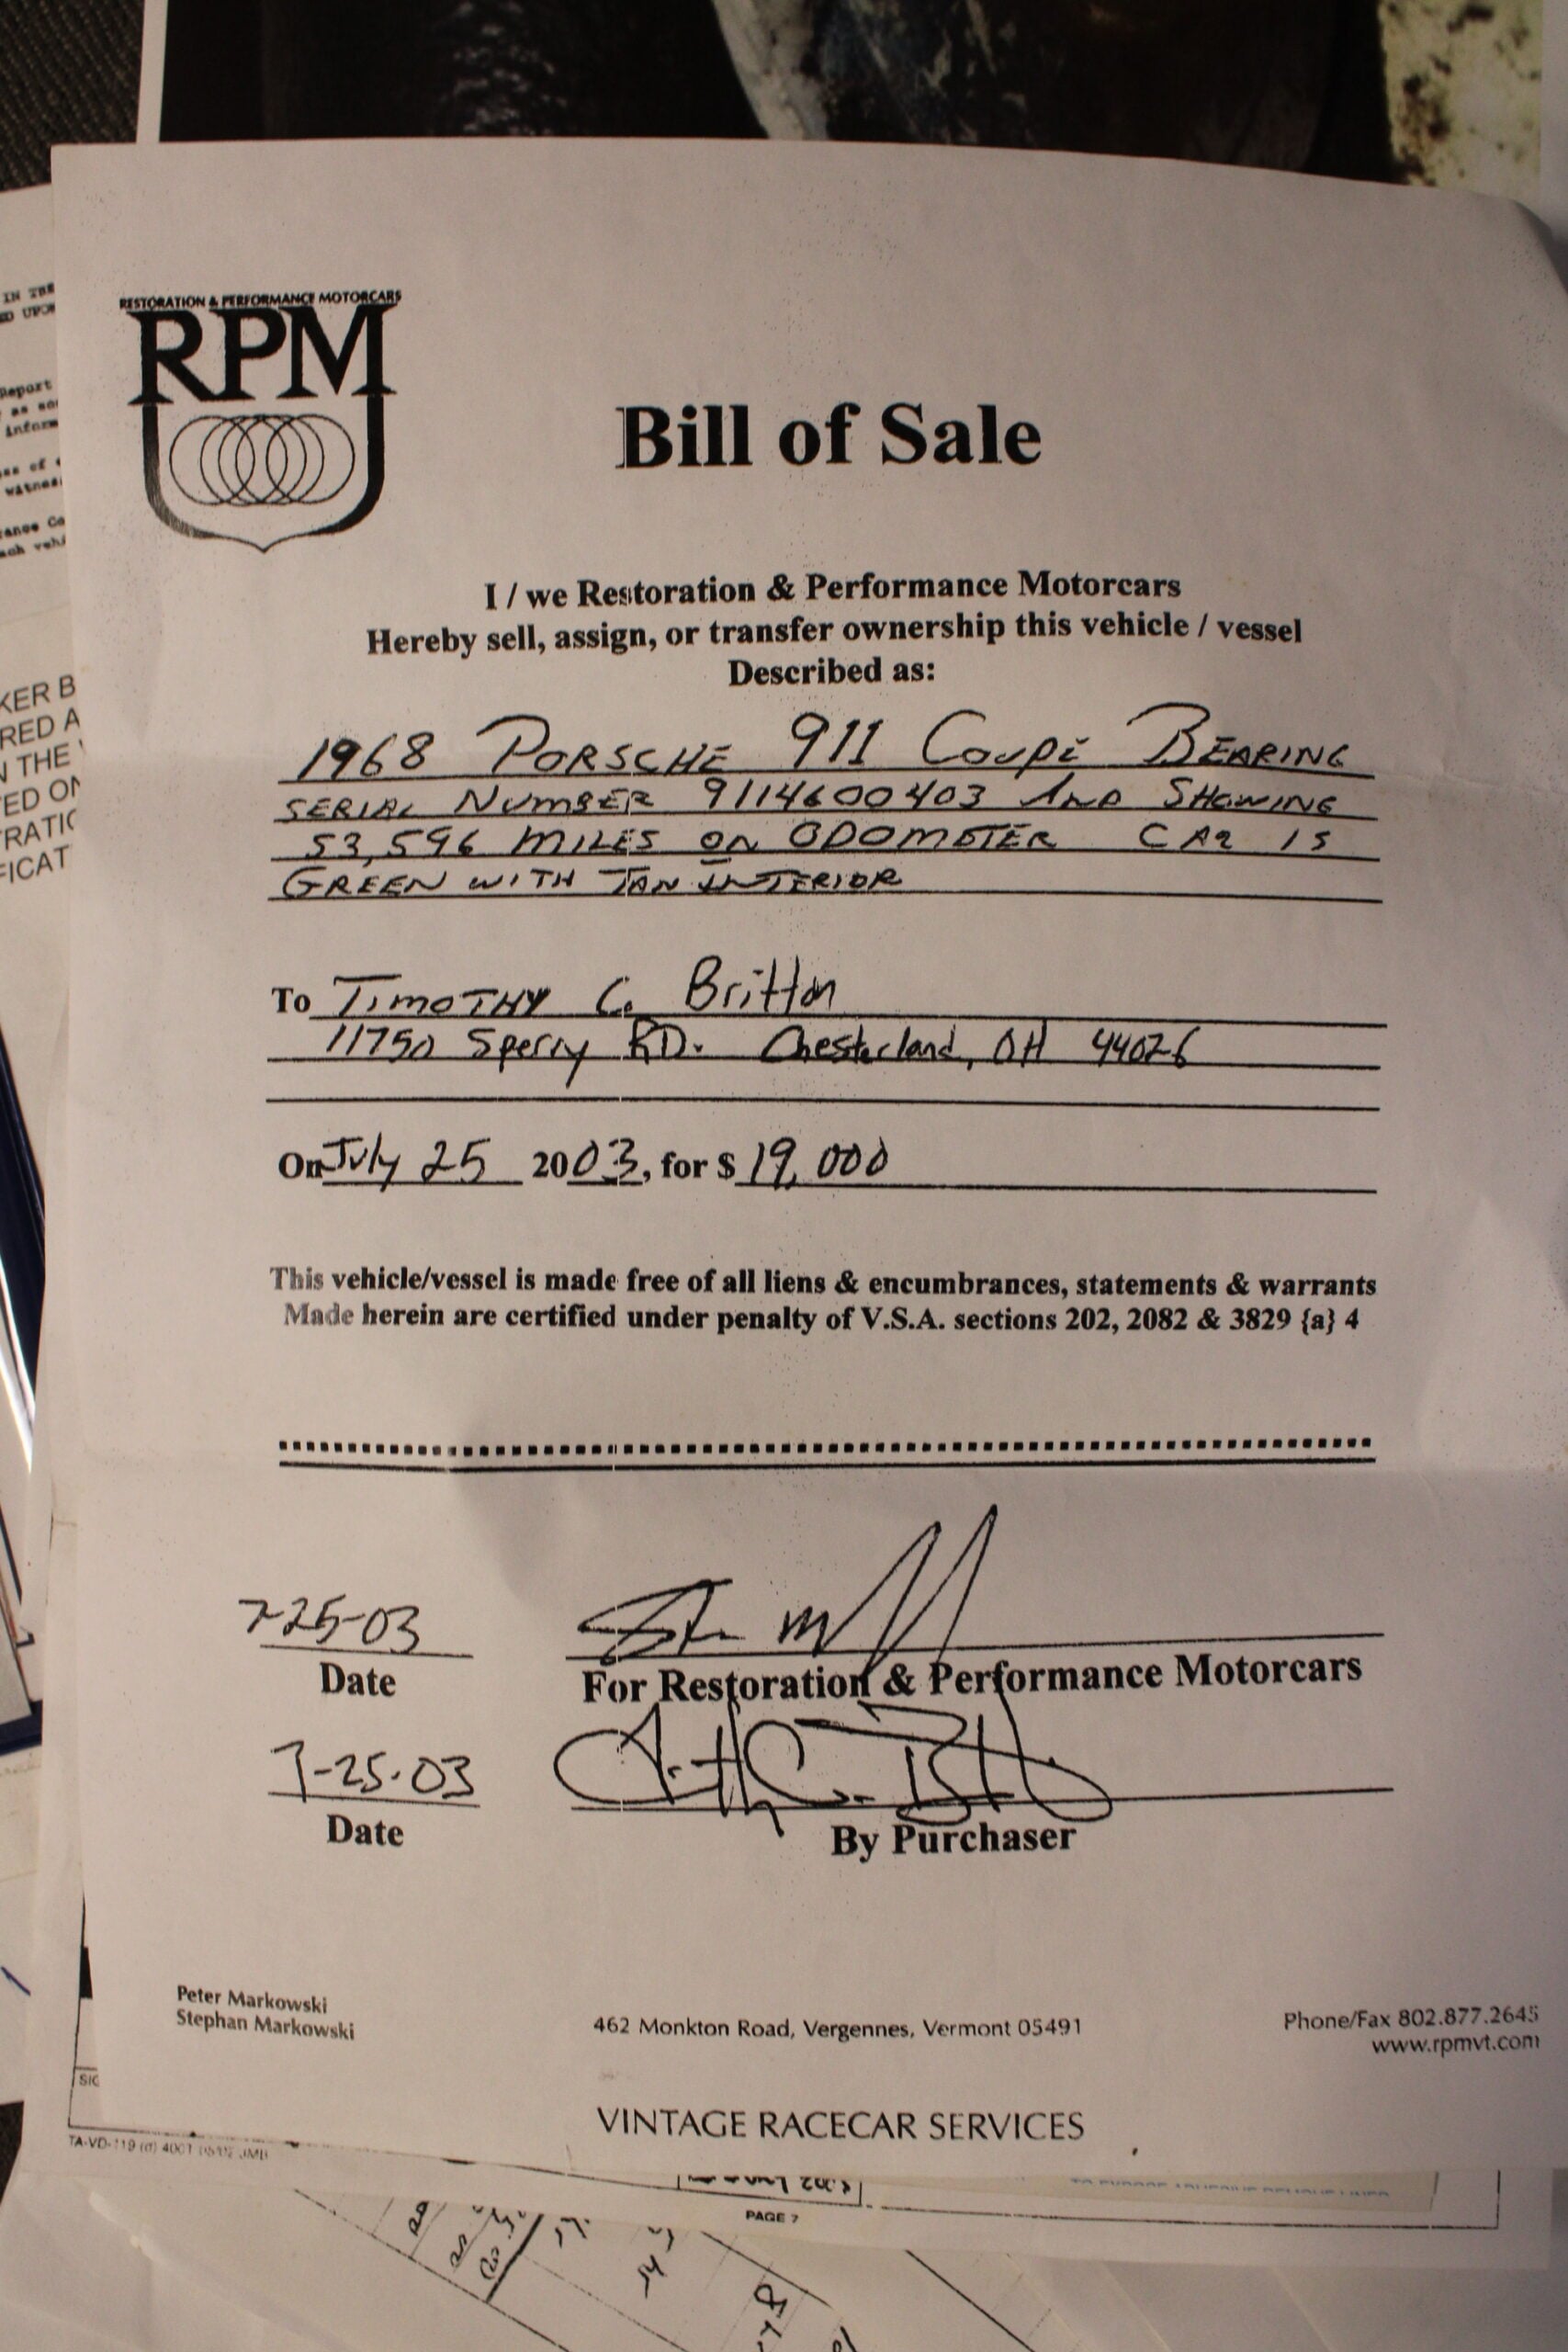 IN THE
ED UPON
Report
as
inform
ess of
witness
ance Co
KER B
RED A
N THE
ED ON
RATIC
FICAT
RESTORATION & PERFORMANCE MOTORCARS
RPM
Bill of Sale
I / we Restoration & Performance Motorcars
Hereby sell, assign, or transfer ownership this vehicle / vessel
Described as:
1968 PORSCHE 911 COUPE BEARING
SERIAL NUMBER 9114600403 AND SHOWING
53,596 MILES ON ODOMETER CAR IS
GREEN WITH TAN INTERIOR
To TIMOTHY C. Britton
11750 Sperry RD. Chesterland, OH 44026
On July 25 2003, for $ 19,000
This vehicle/vessel is made free of all liens & encumbrances, statements & warrants
Made herein are certified under penalty of V.S.A. sections 202, 2082 & 3829 {a} 4
7-25-03
Date
For Restoration & Performance Motorcars
7-25-03
Date
By Purchaser
Peter Markowski
Stephan Markowski
462 Monkton Road, Vergennes, Vermont 05491
Phone/Fax 802.877.2645
www.rpmvt.com
VINTAGE RACECAR SERVICES
SIG
TA-VD-119
PAGE 7